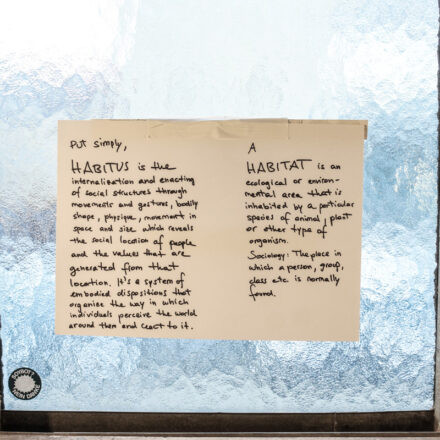 Put simply,
HABITUS is the
internalization and enacting
of social structures through
movements and gestures, bodily
shape, physique, movement in
space and size which reveals
the social location of people
and the values that are
generated from that
location. It's a system of
embodied dispositions that
organize the way in which
individuals perceive the world
around them and react to it.
A
HABITAT is an
ecological or environ-
mental area that is
inhabited by a particular
species of animal, plant
or other type of
organism.
Sociology: The place in
which a person, group,
class etc. is normally
found.
BOYCOTT